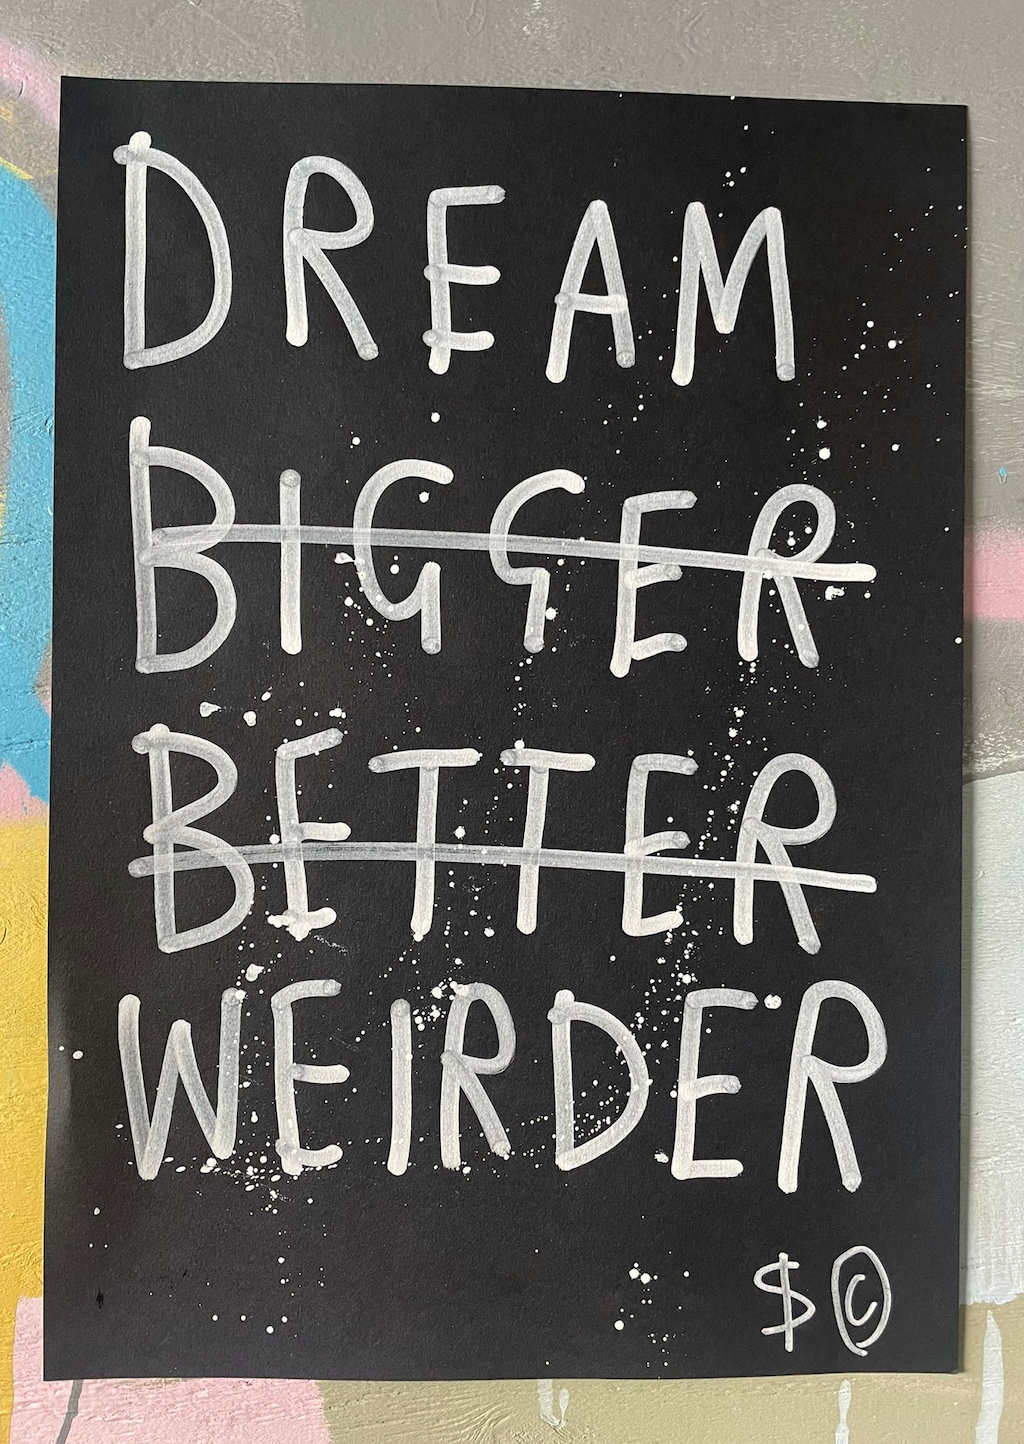 DREAM
BIGGER
BETTER
WEIRDER
$ ©